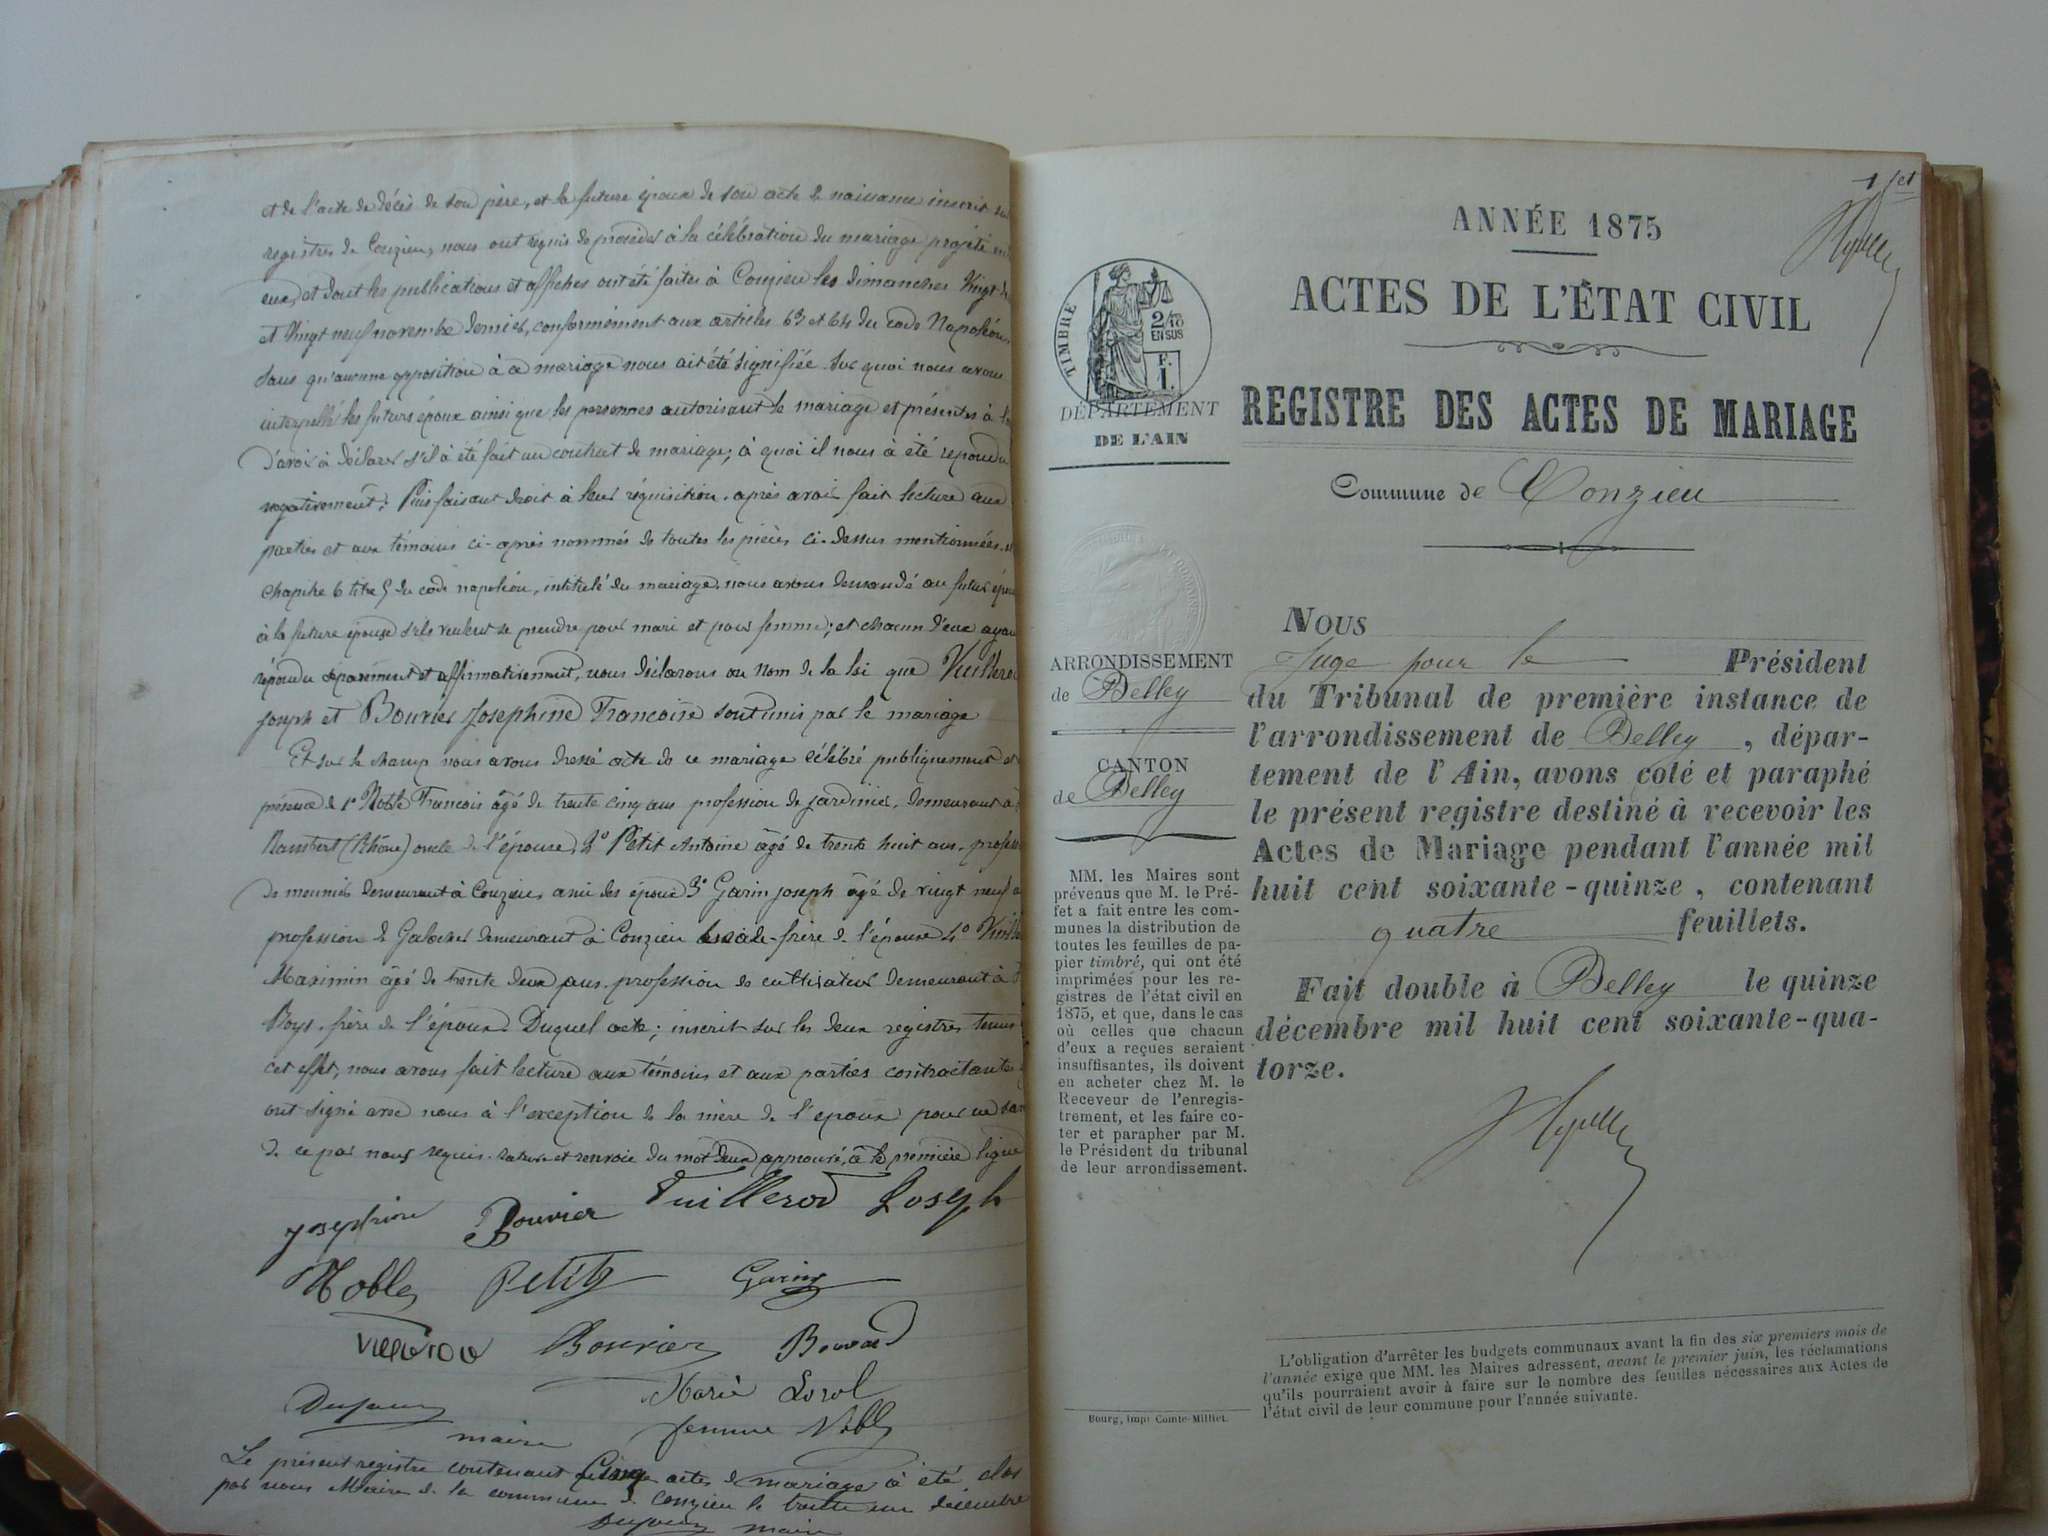 et de l'acte de décès de son père, et la future épouse de son acte de naissance inscrit
registres de Conzieu, nous ont requis de procéder à la célébration du mariage projeté
eux, et dont les publications et affiches ont été faites à Conzieu les dimanches Vingt
et Vingt neuf novembre dernier, conformément aux articles 63 et 64 du code Napoléon
sans qu'aucune opposition à ce mariage nous ait été signifiée. Sur quoi nous avons
interpellé les futurs époux ainsi que les personnes autorisant le mariage et présentes à
d'avoir à déclarer s'il a été fait un contrat de mariage, à quoi il nous à été répondu
négativement; Puis faisant droit à leur réquisition, après avoir fait lecture aux
parties et aux témoins ci-après nommés de toutes les pièces ci-dessus mentionnées
chapitre 6 titre 5 du code napoléon, intitulé du mariage, nous avons demandé au futur
à la future épouse s'ils veulent se prendre pour mari et pour femme; et chacun d'eux ayant
répondu séparément et affirmativement, nous déclarons au nom de la loi que Vuillerod
Joseph et Bouvier Josephine Françoise sont unis par le mariage
Et sur le champ nous avons dressé acte de ce mariage célébré publiquement
présence de 1° Noble François âgé de trente cinq ans profession de jardinier, demeurant à
Rambert (Rhône) oncle de l'épouse, 2° Petit Antoine âgé de trente huit ans,
de meunier demeurant à Conzieu ami des époux 3° Garin Joseph âgé de vingt neuf
profession de Galocher demeurant à Conzieu beau-frère de l'épouse 4°
Maximin âgé de trente deux ans, profession de cultivateur demeurant à
Boys, frère de l'époux. Duquel acte; inscrit sur les deux registres tenus
cet effet, nous avons fait lecture aux témoins et aux parties contractantes
ont signé avec nous à l'exception de la mère de l'époux pour ne
de ce par nous requis. rature et renvoie du mot deux approuvé, à la première ligne
Josephine Bouvier Vuillerod Joseph
Noble Petit Garin
Bouvier
Marie
maire femme Noble
Le présent registre contenant Cinq actes de mariage à été clos
par nous Maire de la commune de Conzieu le trente un décembre
maire
1er
ANNÉE 1875
ACTES DE L'ÉTAT CIVIL
REGISTRE DES ACTES DE MARIAGE
Commune de Conzieu
TIMBRE
2/10
EN SUS
F.
1.
DÉPARTEMENT
DE L'AIN
ARRONDISSEMENT
de Belley
CANTON
de Belley
MM. les Maires sont
prévenus que M. le Pré-
fet a fait entre les com-
munes la distribution de
toutes les feuilles de pa-
pier timbré, qui ont été
imprimées pour les re-
gistres de l'état civil en
1875, et que, dans le cas
où celles que chacun
d'eux a reçues seraient
insuffisantes, ils doivent
en acheter chez M. le
Receveur de l'enregis-
trement, et les faire co-
ter et parapher par M.
le Président du tribunal
de leur arrondissement.
Bourg, Impr Comte-Milliet.
NOUS
Juge pour le Président
du Tribunal de première instance de
l'arrondissement de Belley, dépar-
tement de l'Ain, avons coté et paraphé
le présent registre destiné à recevoir les
Actes de Mariage pendant l'année mil
huit cent soixante-quinze, contenant
quatre feuillets.
Fait double à Belley le quinze
décembre mil huit cent soixante-qua-
torze.
L'obligation d'arrêter les budgets communaux avant la fin des six premiers mois de
l'année exige que MM. les Maires adressent, avant le premier juin, les réclamations
qu'ils pourraient avoir à faire sur le nombre des feuilles nécessaires aux Actes de
l'état civil de leur commune pour l'année suivante.